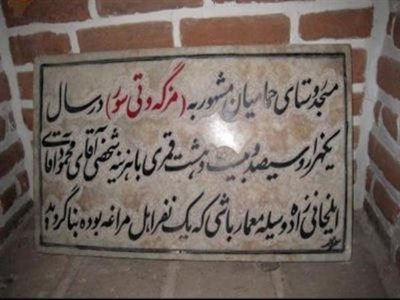 مسجد روستای حمامیان مشهور به (مزگه وتی سور) در سال
یکهزار و سیصد و بیست و هشت قمری با هزینه شخصی آقای محمود آقای
ایلخانی زاده وسیله معمار باشی که یک نفر اهل مراغه بوده بنا گردید